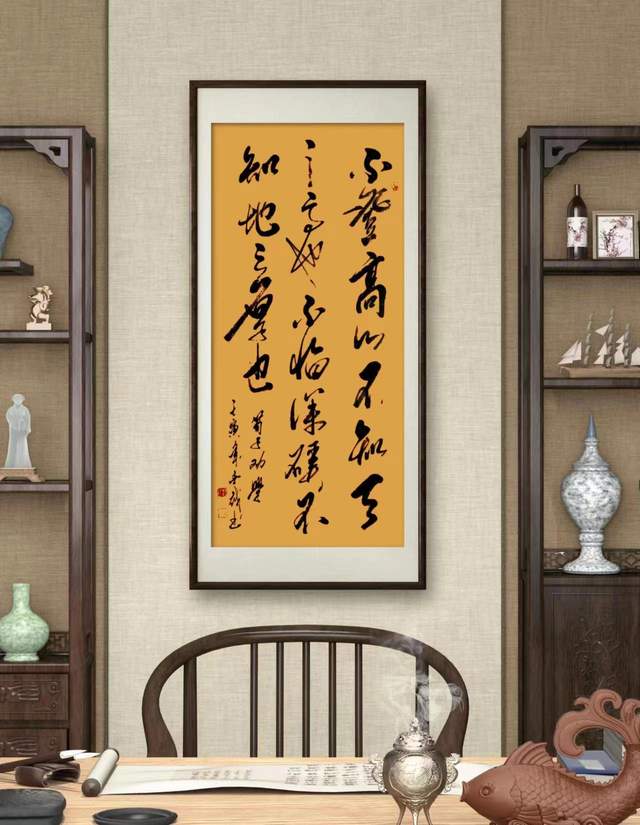 不登高山不知天
之高也不临深磎不
知地之厚也
荀子劝學
壬寅年